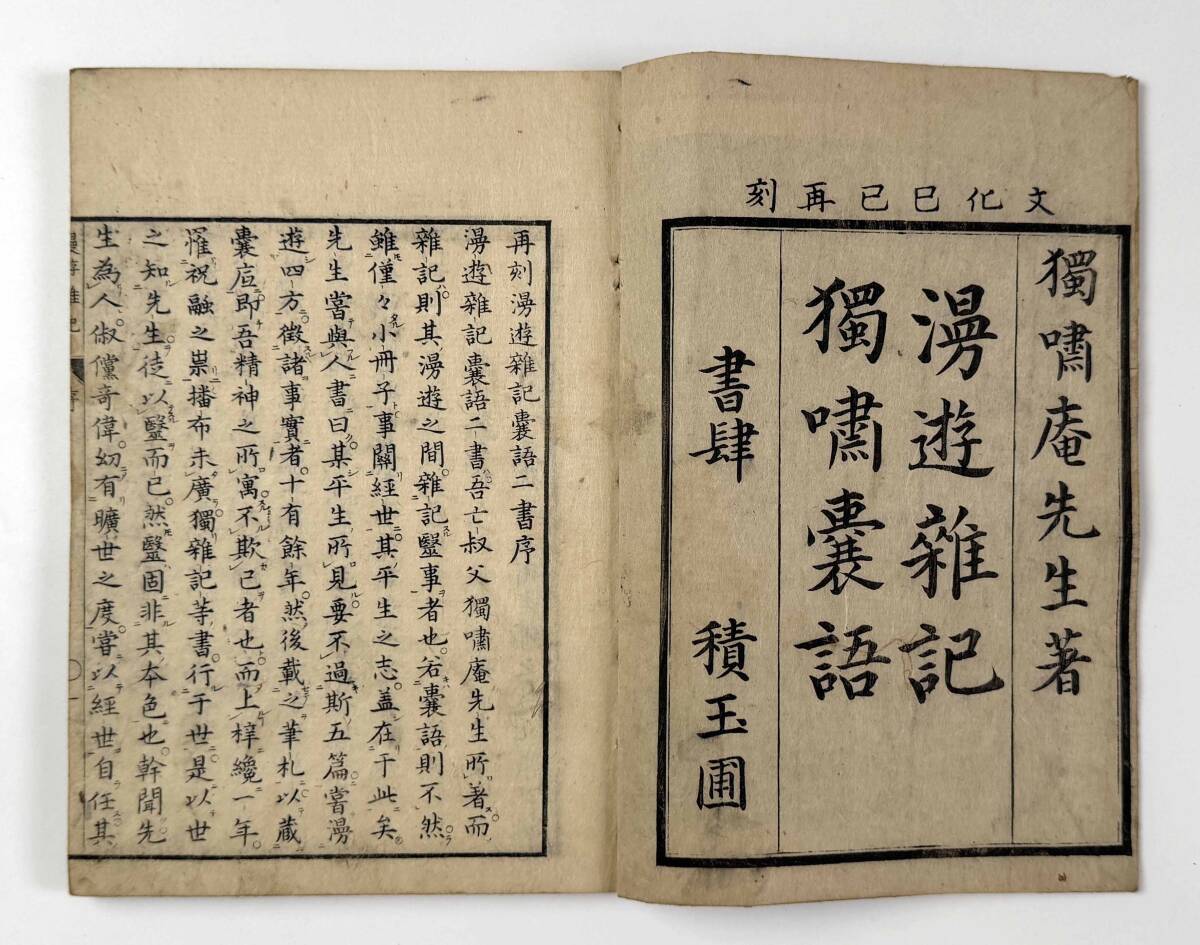 文化巳已再刻
獨嘯庵先生著
漫遊雜記
獨嘯囊語
書肆 積玉圃
再刻漫遊雜記囊語二書序
漫遊雜記囊語二書吾亡叔父獨嘯庵先生所著而
雜記則其漫遊之間雜記毉事者也若囊語則不然
雖僅々小冊子事關經世其平生之志盖在于此矣
先生嘗與人書曰某平生所見要不過斯五篇嘗漫
遊四方徵諸事實者十有餘年然後載之筆札以蔵
囊底即吾精神之所寓不欺己者也而上梓纔一年
罹祝融之祟播布未廣獨雜記等書行于世是以世
之知先生徒以毉而已然毉固非其本色也幹聞先
生為人俶儻奇偉幼有曠世之度嘗以經世自任其
漫遊雜記 序 一